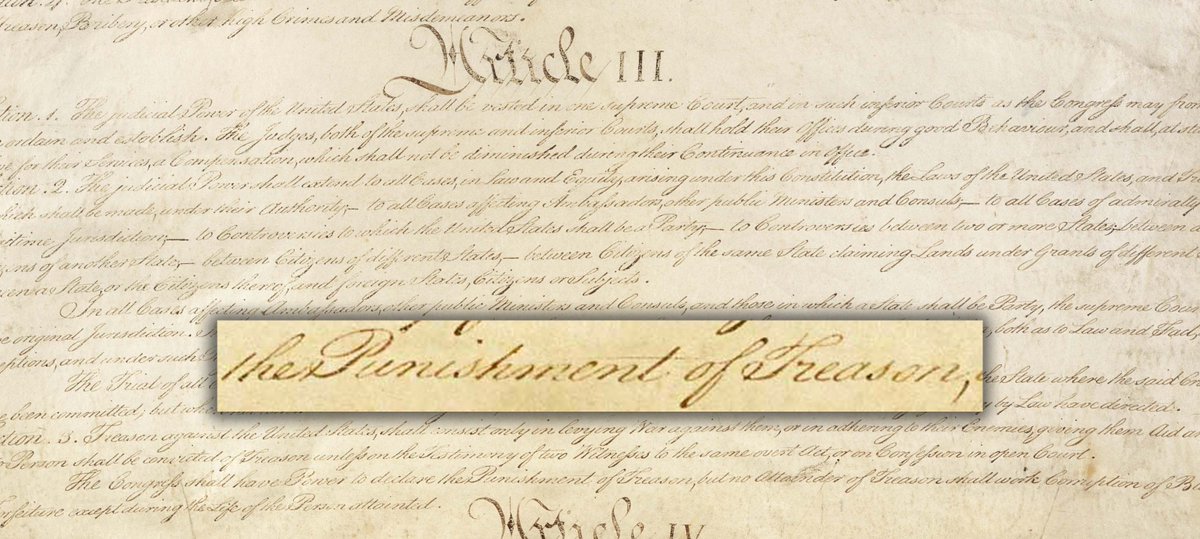 Treason, Bribery, or other high Crimes and Misdemeanors.
Article III.
tion. 1. The judicial Power of the United States, shall be vested in one supreme Court, and in such inferior Courts as the Congress may from
ordain and establish. The Judges, both of the supreme and inferior Courts, shall hold their Offices during good Behaviour, and shall, at st
ve for their Services, a Compensation, which shall not be diminished during their Continuance in Office.
tion. 2. The judicial Power shall extend to all Cases, in Law and Equity, arising under this Constitution, the Laws of the United States, and Tre
hich shall be made, under their Authority;— to all Cases affecting Ambassadors, other public Ministers and Consuls;— to all Cases of admiralty
ritime Jurisdiction;— to Controversies to which the United States shall be a Party;— to Controversies between two or more States;— between
zens of another State,— between Citizens of different States,— between Citizens of the same State claiming Lands under Grants of different
ween a State, or the Citizens thereof, and foreign States, Citizens or Subjects.
In all Cases affecting Ambassadors, other public Ministers and Consuls, and those in which a State shall be Party, the supreme Cour
ve original Jurisdiction. both as to Law and Fact,
eptions, and under such
the Punishment of Treason,
The Trial of all the State where the said Cr
ve been committed; but when by Law have directed.
ction. 3. Treason against the United States, shall consist only in levying War against them, or in adhering to their Enemies, giving them Aid a
Person shall be convicted of Treason unless on the Testimony of two Witnesses to the same overt Act, or on Confession in open Court.
The Congress shall have Power to declare the Punishment of Treason, but no Attainder of Treason shall work Corruption of B
orfeiture except during the Life of the Person attainted.
Article IV.